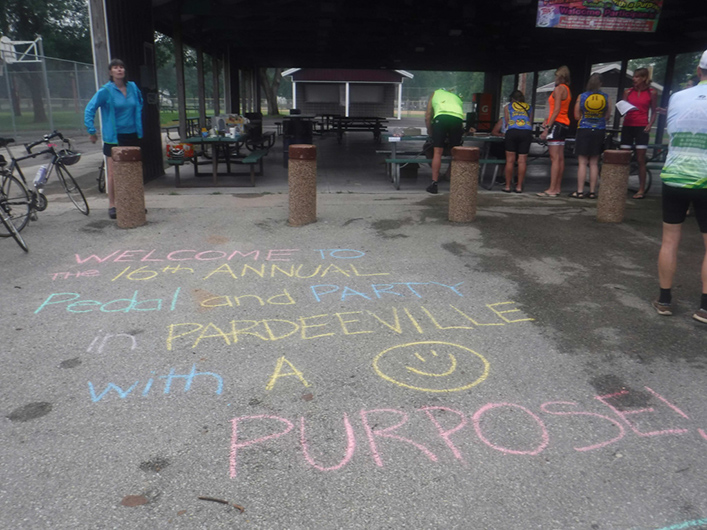 WELCOME TO
THE 16th ANNUAL
Pedal and PARTY
in PARDEEVILLE
with A
PURPOSE!